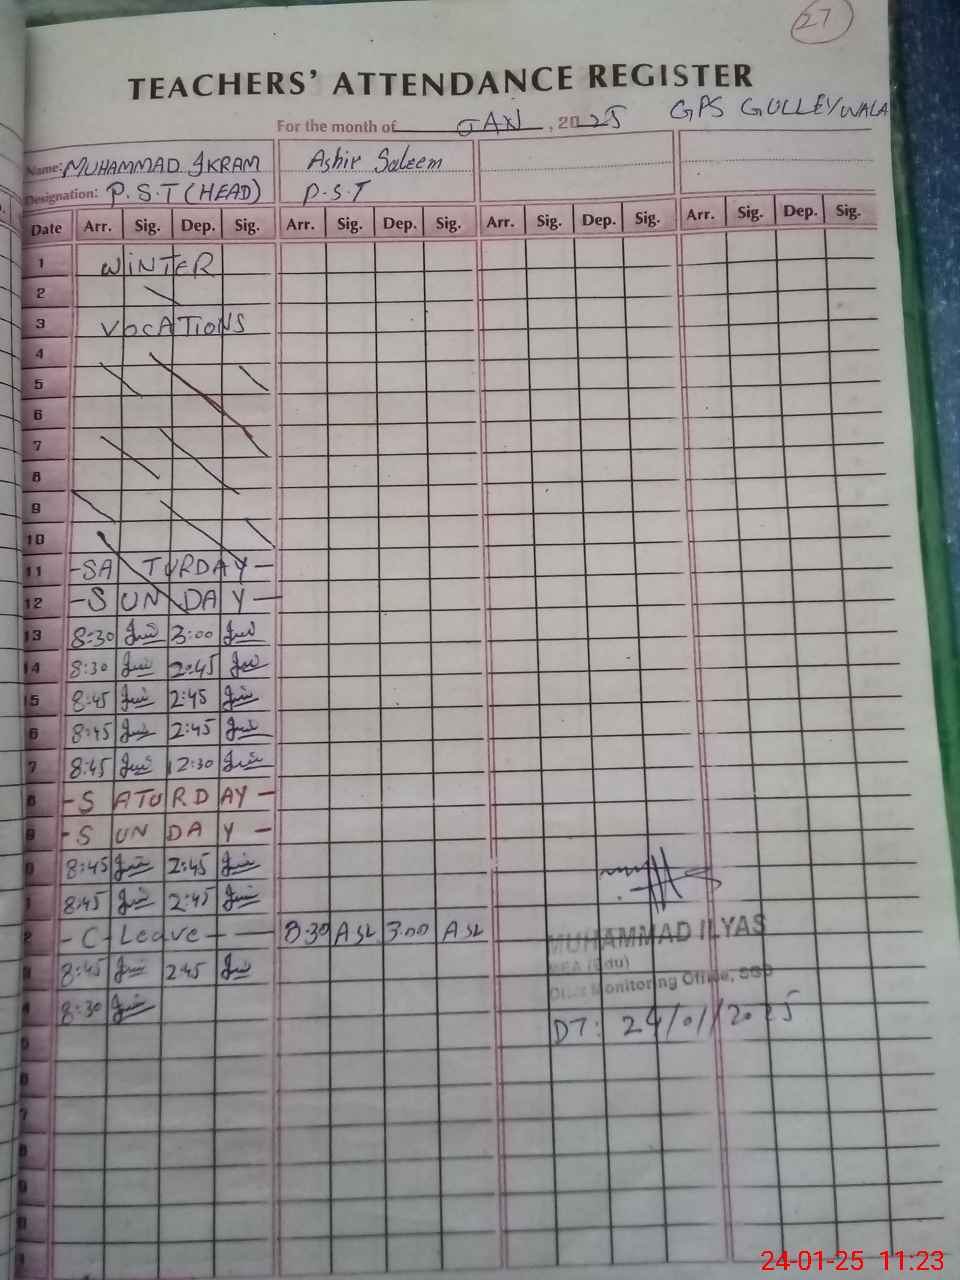 27
TEACHERS' ATTENDANCE REGISTER
For the month of JAN, 2025 GPS GULLEYWALA
Name: MUHAMMAD IKRAM Ashir Saleem
Designation: P.S.T (HEAD) P.S.T
Date Arr. Sig. Dep. Sig. Arr. Sig. Dep. Sig. Arr. Sig. Dep. Sig. Arr. Sig. Dep. Sig.
1 WINTER
2
3 VOCATIONS
4
5
6
7
8
9
10
11 -SATURDAY-
12 -SUNDAY-
13 8:30 3:00
14 8:30 2:45
15 8:45 2:45
6 8:45 2:45
7 8:45 12:30
8 -SATURDAY-
9 -SUNDAY-
0 8:45 2:45
1 8:45 2:45
2 - C-Leave - 8:30 ASL 3:00 ASL
MUHAMMAD ILYAS
MEA (Edu)
3 8:45 2:45
Monitoring Office, SGD
4 8:30
DT: 24/01/2025
5
6
7
8
9
0
1
24-01-25 11:23